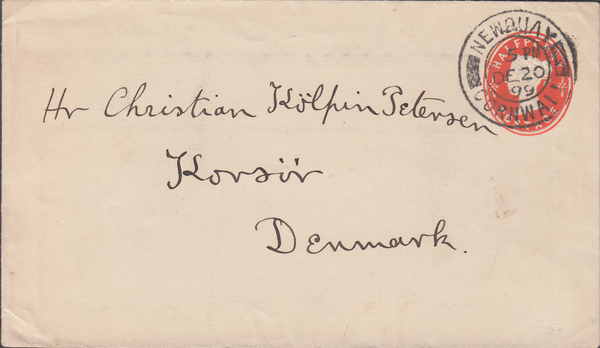 NEWQUAY
5 PM
DE 20
99
CORNWALL
HALFPENNY
POSTAGE
Hr Christian Kölpin Petersen
Korsör
Denmark.